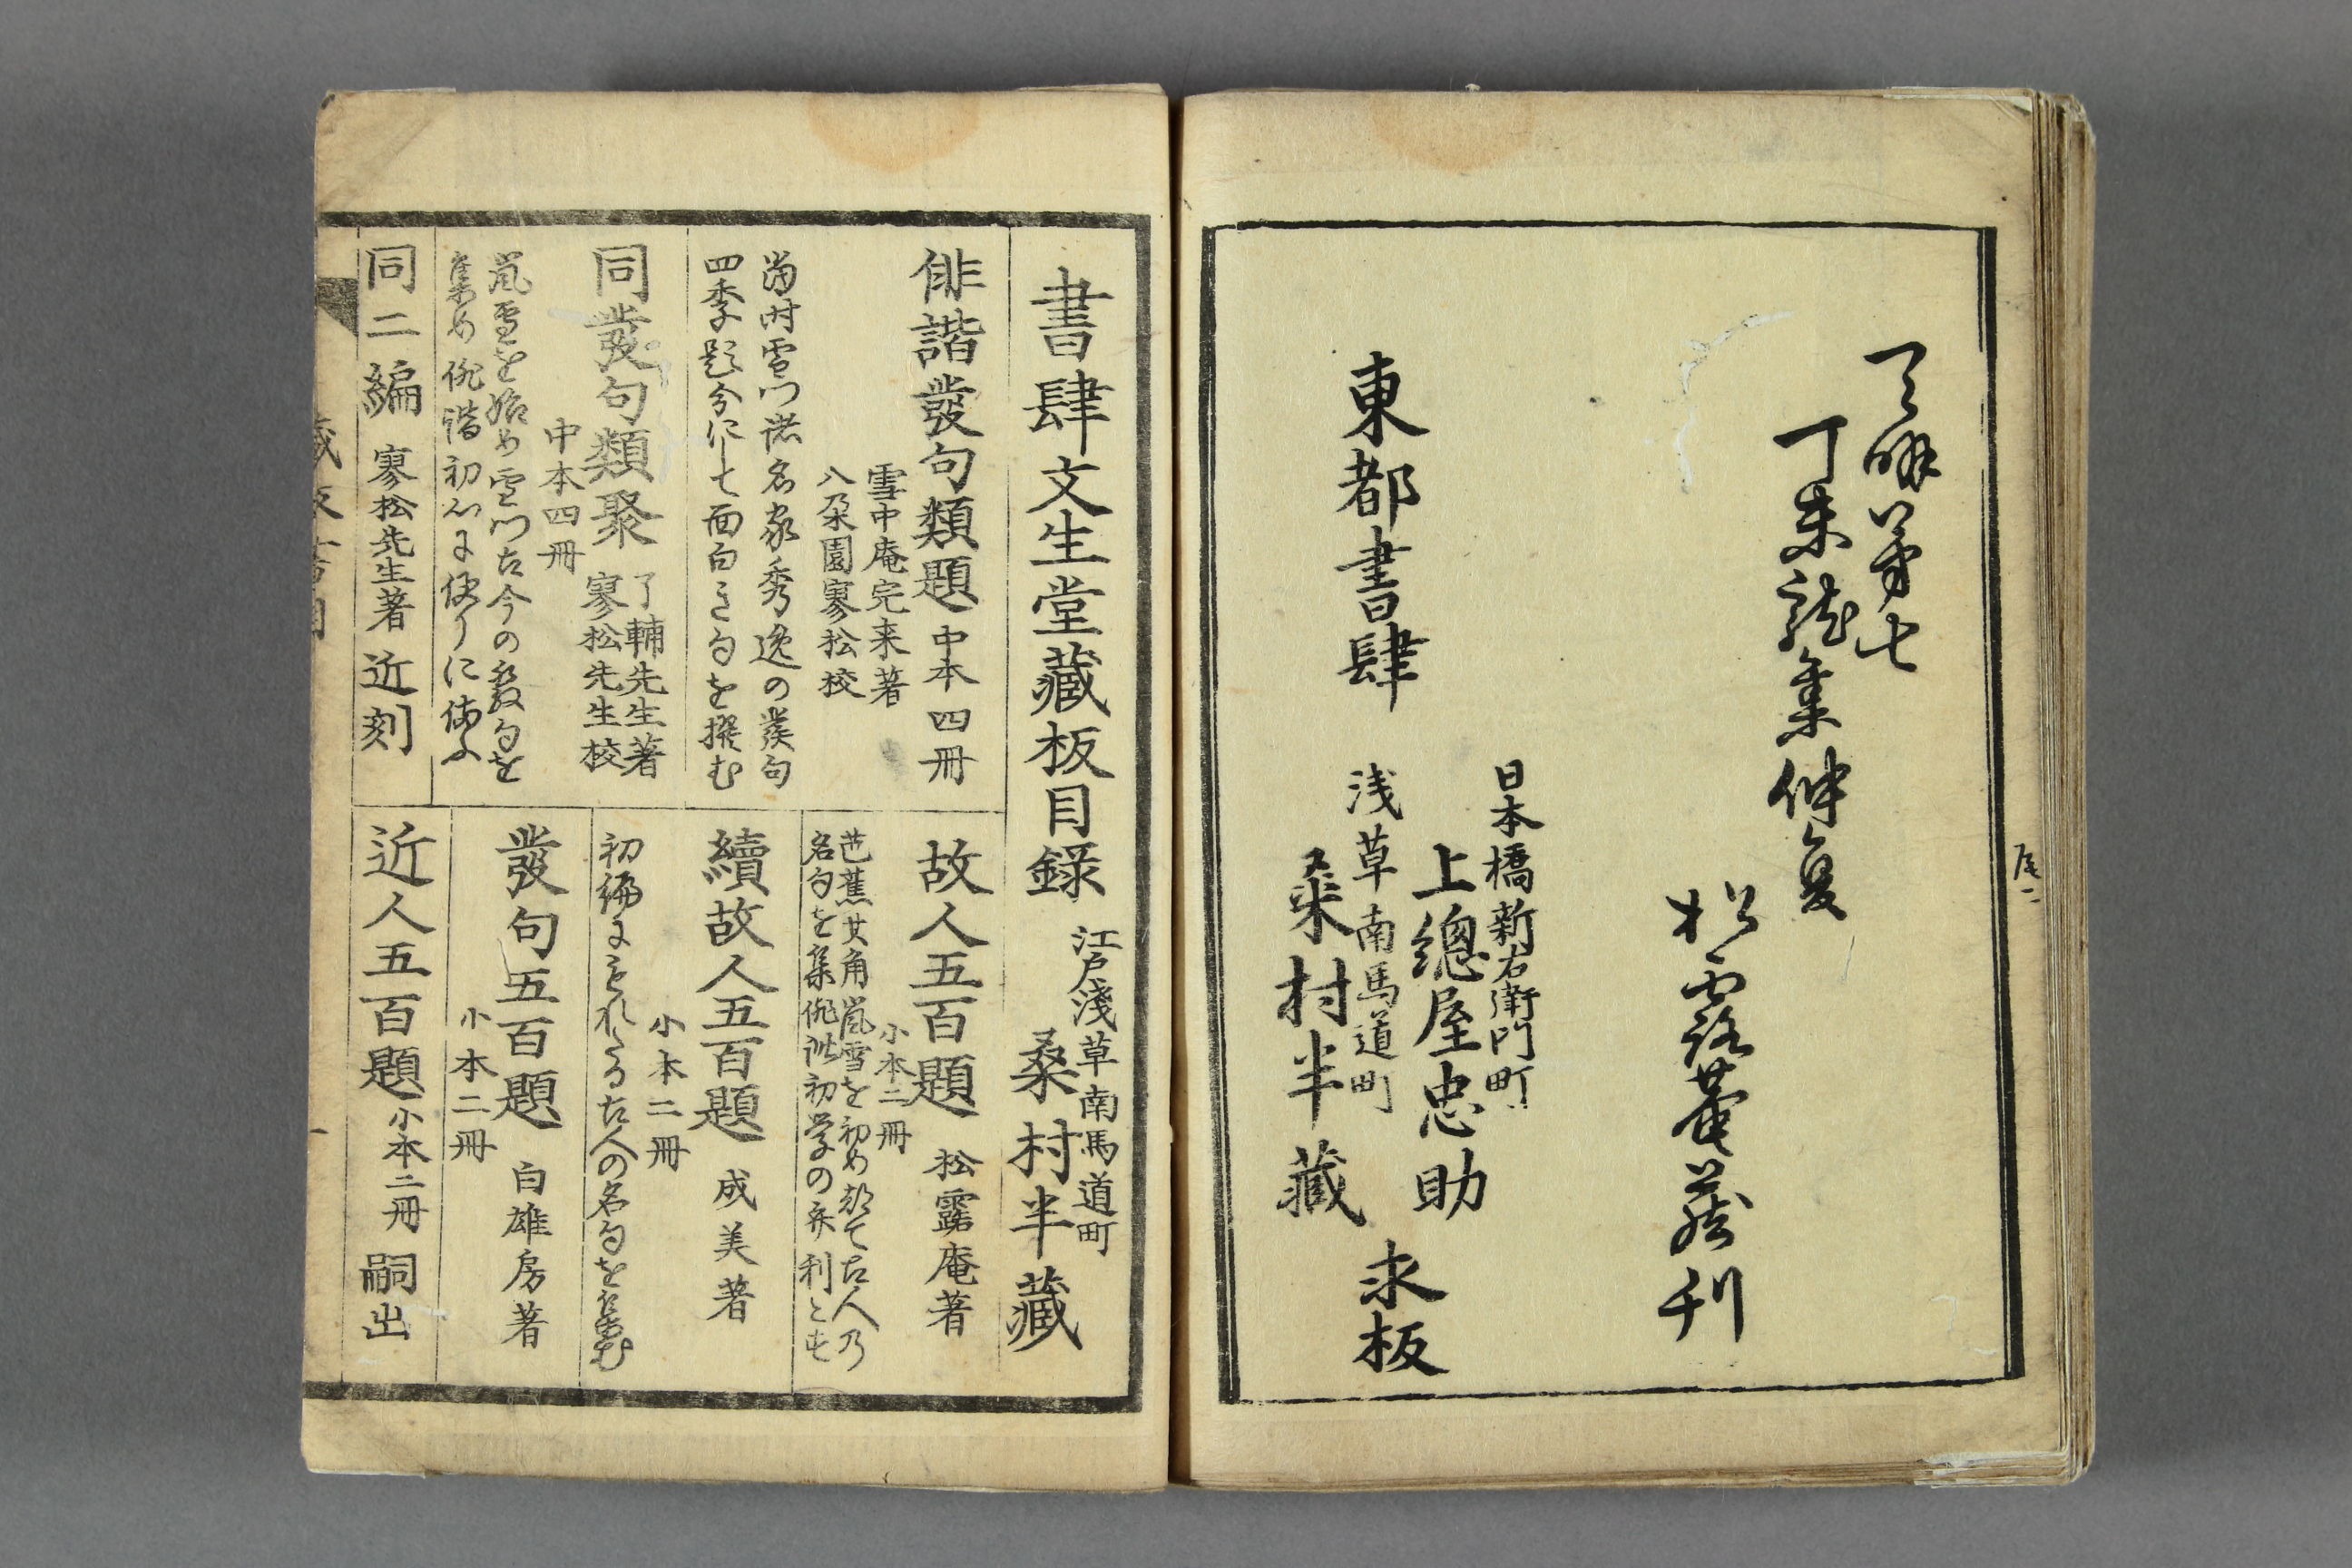 天明第七
丁未龍集仲夏
松露菴蔵刊
東都書肆
日本橋新右衛門町
上總屋忠助
浅草南馬道町
桒村半藏
求板
尾二
書肆文生堂藏板目録
江戸淺草南馬道町
桑村半藏
俳諧發句類題 中本四冊
雪中庵完来著
八朶園寥松校
當時雪门諸名家秀逸の發句
四季題分にして面白き句を撰む
同發句類聚
了輔先生著
寥松先生校
中本四冊
嵐雪を始め雪门古今の發句を
集め俳諧初心に便りに備ふ
同二編 寥松先生著 近刻
故人五百題 松露庵著
小本二冊
芭蕉其角嵐雪を初め都て古人乃
名句を集俳諧初学の便利とす
續故人五百題 成美著
小本二冊
初編にもれたる古人の名句を集む
發句五百題 白雄房著
小本二冊
近人五百題 小本二冊 嗣出